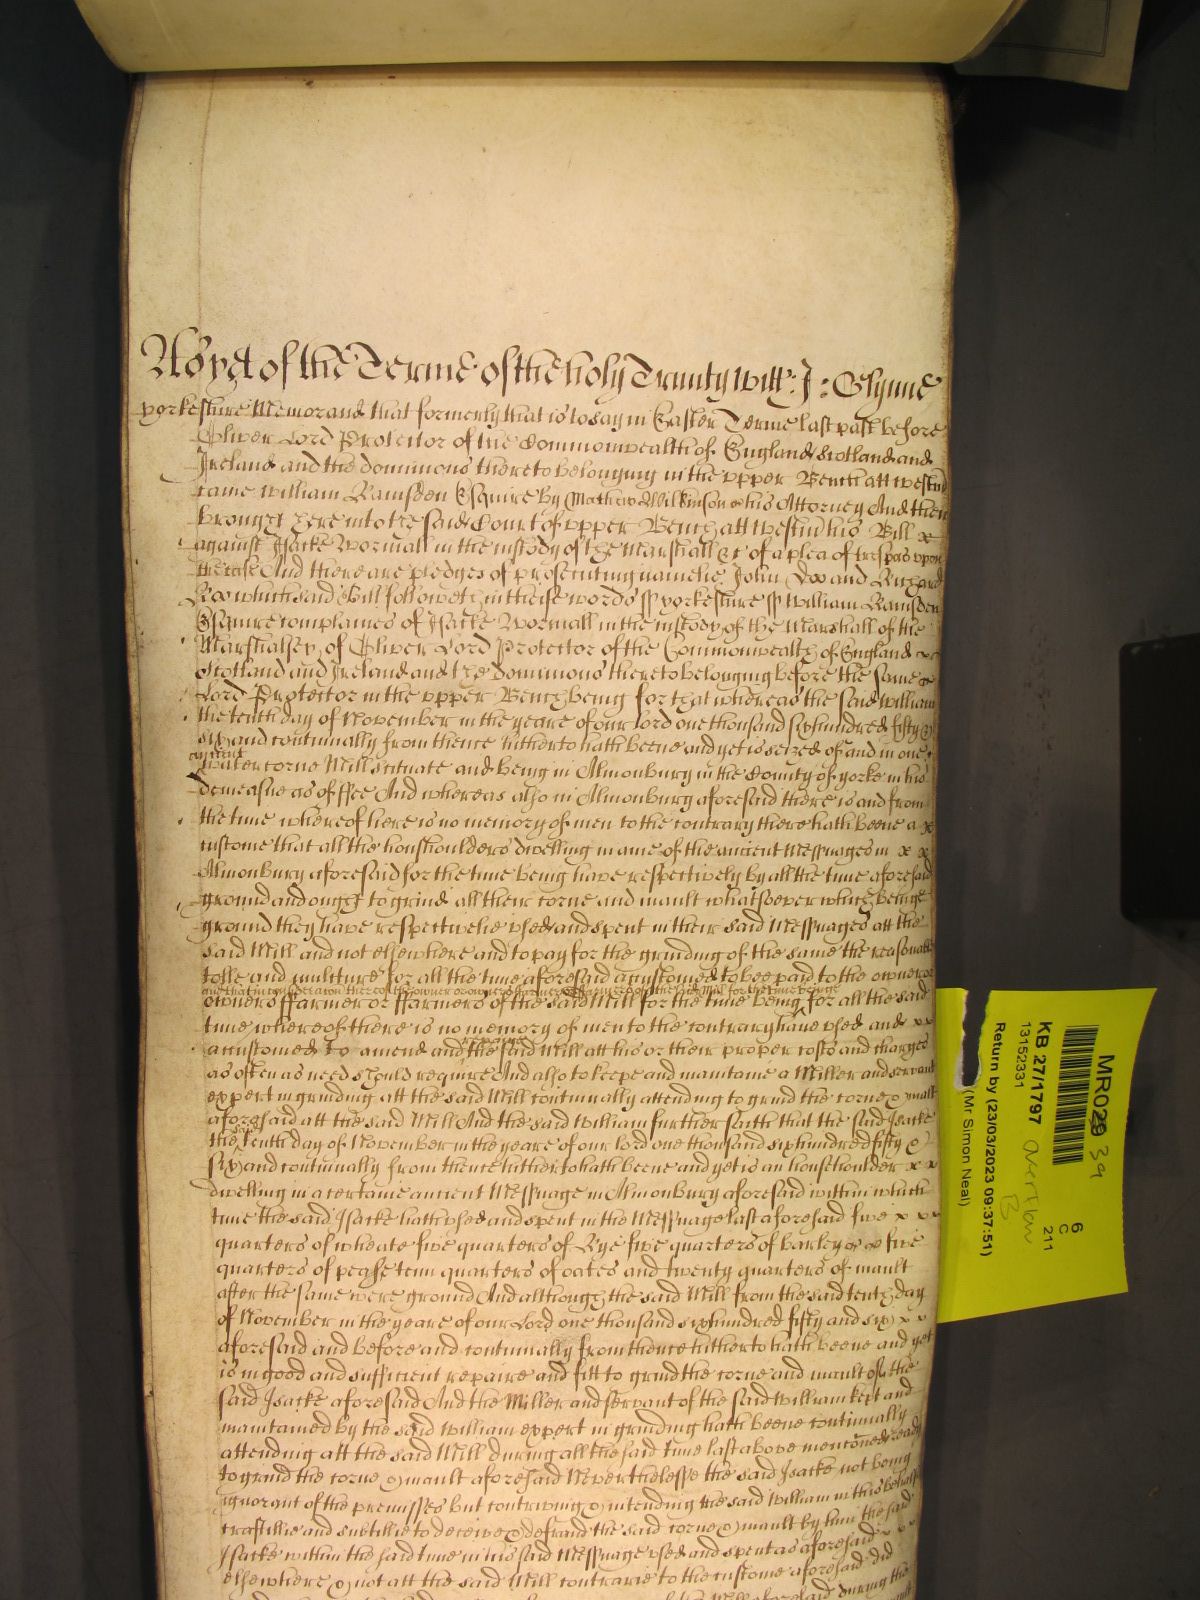 As yet of the Terme of the holy Trinity Witt: J: Glynne
Yorkeshire Memorand that formerly that is to say in Easter Terme last past before
Oliver Lord Protector of the Commonwealth of England Scotland and
Ireland and the dominions thereto belonging in the upper Bench att Westm
came William Ramsden Esquire by Mathew Wilkinson his Attorney And then
brought here into the said Court of upper Bench att Westm his Bill
against Isacke Wormall in the custody of the Marshall &c of a plea of trespas upon
the case And there are pledges of prosecuting namelie John Doo and Richard
Roo which said Bill followeth in theise words ss Yorkeshire ss William Ramsden
Esquire complaines of Isacke Wormall in the custody of the Marshall of the
Marshalsey of Oliver Lord Protector of the Commonwealth of England
Scotland and Ireland and the dominions thereto belonging before the same
Lord Protector in the upper Bench being for that whereas the said William
the tenth day of November in the yeare of our lord one thousand sixhundred fifty &
six and continually from thence hitherto hath beene and yet is seized of and in one
ancient
water corne Mill scituate and being in Almonbury in the County of yorke in his
demeasne as of ffee And whereas also in Almonbury aforesaid there is and from
the time whereof here is no memory of men to the contrary there hath beene a
custome that all the houshoulders dwelling in anie of the ancient Messuages in x x
Almonbury aforesaid for the time being have respectively by all the time aforesaid
ground and ought to grind all their corne and mault whatsoever which beinge
ground they have respectivelie used and spent in their said Messuages att the
said Mill and not elsewhere and to pay for the grinding of the same the reasonable
tolle and multure for all the time aforesaid accustomed to bee paid to the owner or
owners ffarmer or ffarmers of the said Mill for the time being for all the said
time whereof there is no memory of men to the contrary have used and x x
repaire
accustomed to amend and the said Mill att his or their proper costs and charges
as often as need should require And also to keepe and maintaine a Miller and servant
expert in grinding att the said Mill continually attending to grind the corne & mault
aforesaid att the said Mill And the said William further saith that the said Isacke
said
the tenth day of November in the yeare of our lord one thousand sixhundred fifty &
six and continually from thence hitherto hath beene and yet is an houshoulder x x
dwelling in a certaine ancient Messuage in Almonbury aforesaid within which
time the said Isacke hath used and spent in the Messuage last aforesaid five x x x
quarters of wheate five quarters of Rye five quarters of barley x x five
quarters of pease tenn quarters of oates and twenty quarters of mault
after the same were ground And although the said Mill from the said tenth day
of November in the yeare of our Lord one thousand sixhundred fifty and six x x
aforesaid and before and continually from thence hitherto hath beene and yet
is in good and sufficient repaire and fitt to grind the corne and mault of the
said Isacke aforesaid And the Miller and servant of the said William kept and
maintained by the said William expert in grinding hath beene continually
attending att the said Mill during all the said time last above mencioned ready
to grind the corne & mault aforesaid Neverthelesse the said Isacke not being
ignorant of the premisses but contriving & intending the said William in this behalfe
craftilie and subtillie to deceive & defraud the said corne & mault by him the said
Isacke within the said time in his said Messuage used and spent as aforesaid x x x
elsewhere & not att the said Mill contrarie to the custome aforesaid did
MR029 39
KB 27/1797
13152331
Return by (23/03/2023 09:37:51)
(Mr Simon Neal)
overflow
B
6
C
211